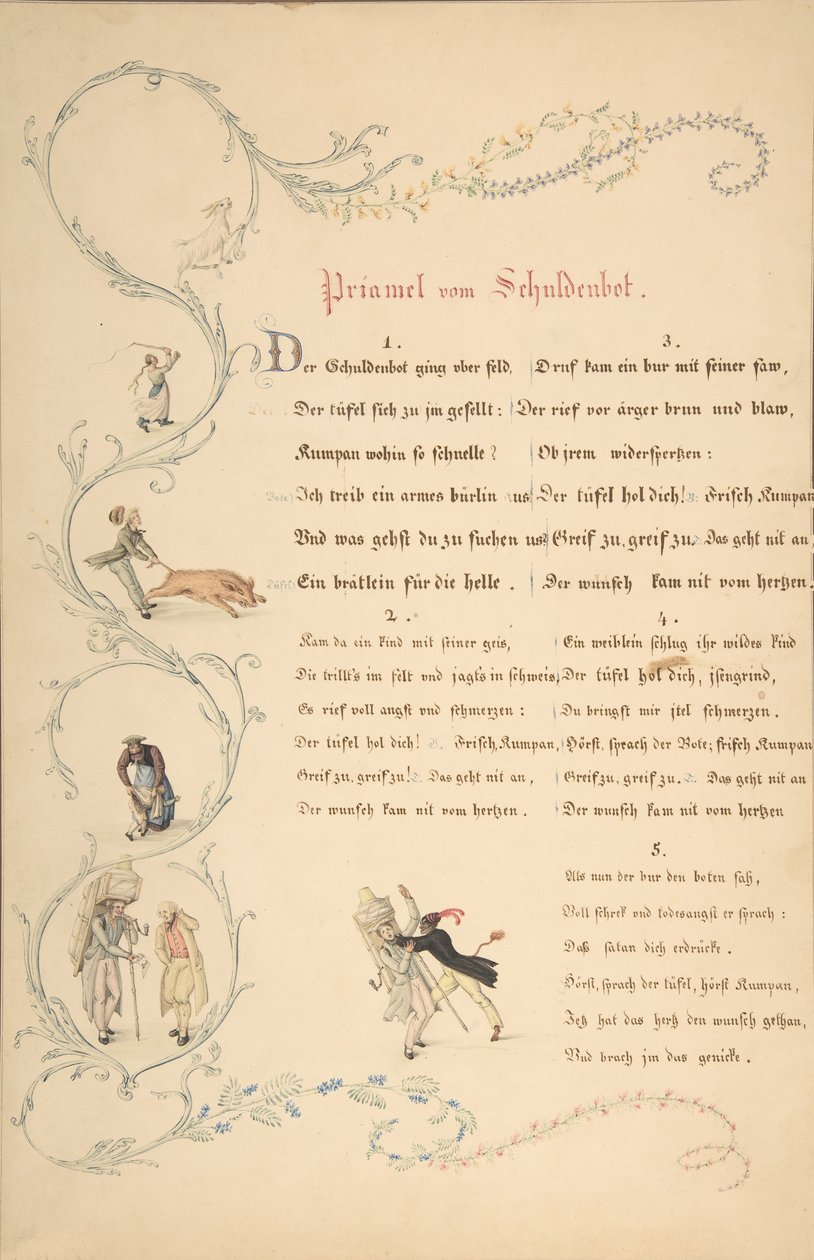 Priamel vom Schuldenbot.
1.
Der Schuldenbot ging vber feld,
Der tüfel sich zu jm gesellt:
Kumpan wohin so schnelle?
Bote) Ich treib ein armes bürlin us!
Vnd was gehst du zu suchen us?
Tüfel) Ein brätlein für die helle.
2.
Kam da ein kind mit seiner geis,
Die trillt's im felt vnd jagt's in schweis,
Es rief voll angst vnd schmerzen:
Der tüfel hol dich! B. Frisch, Kumpan,
Greif zu, greif zu! T. Das geht nit an,
Der wunsch kam nit vom hertzen.
3.
Druf kam ein bur mit seiner saw,
Der rief vor ärger brun und blaw,
Ob jrem widerspertzen:
Der tüfel hol dich! B. Frisch Kumpan
Greif zu, greif zu. T. Das geht nit an
Der wunsch kam nit vom hertzen.
4.
Ein weiblein schlug ihr wildes kind
Der tüfel hol dich, jsengrind,
Du bringst mir jtel schmerzen.
Hörst, sprach der Bote; frisch Kumpan
Greif zu, greif zu. T. Das geht nit an
Der wunsch kam nit vom hertzen
5.
Als nun der bur den boten sah,
Voll schrek vnd todesangst er sprach:
Daß satan dich erdrücke.
Hörst, sprach der tüfel, hörst Kumpan,
Jetz hat das hertz den wunsch gethan,
Vnd brach jm das genicke.